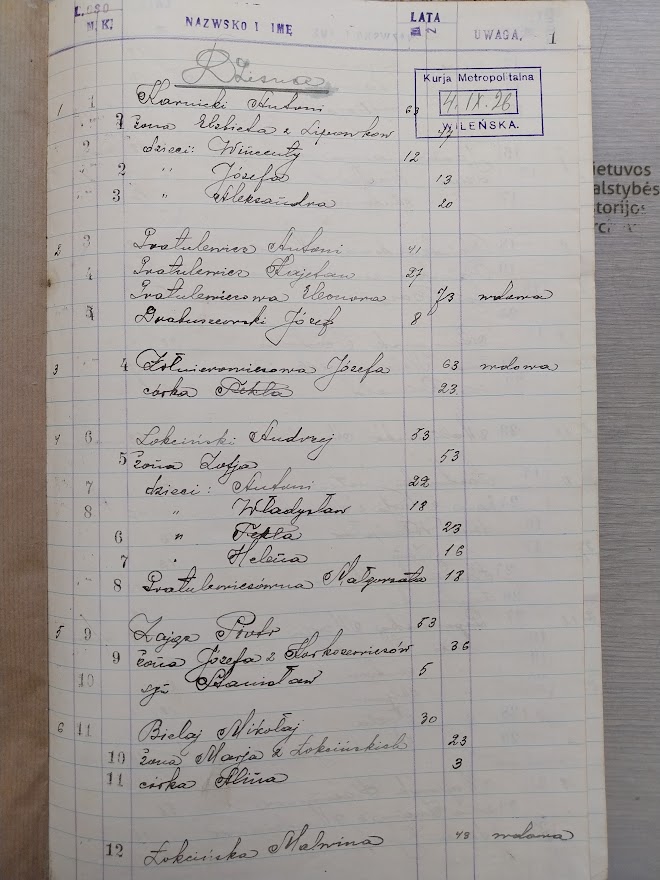 L. OSO
M. K.
NAZWSKO I IMĘ
LATA
UWAGA,
1
Kurja Metropolitalna
4. IX. 26
WILEŃSKA.
1 1 Karnicki Antoni 63
2 żona Elżbieta z Lipowkow 47
2 dzieci: Wincenty 12
2 " Józefa 13
3 " Aleksandra 20
2 3 Pratulewicz Antoni 41
4 Pratulewicz Kajetan 27
Pratulewiczowa Eleonora 73 wdowa
5 Bratuszewski Józef 8
3 4 Żołnierowiczowa Józefa 63 wdowa
córka Tekla 23
4 6 Łokciński Andrzej 53
5 żona Zofja 53
7 dzieci: Antoni 22
8 " Władysław 18
6 " Tekla 23
7 " Helena 16
8 Pratulewiczówna Małgorzata 18
5 9 Zając Piotr 53
9 żona Józefa z 36
10 syn Stanisław 5
6 11 Bielaj Mikołaj 30
10 żona Marja z Łokcińskich 23
11 córka Alina 3
12 Łokcińska Malwina 43 wdowa
ietuvos
alstybės
torijos